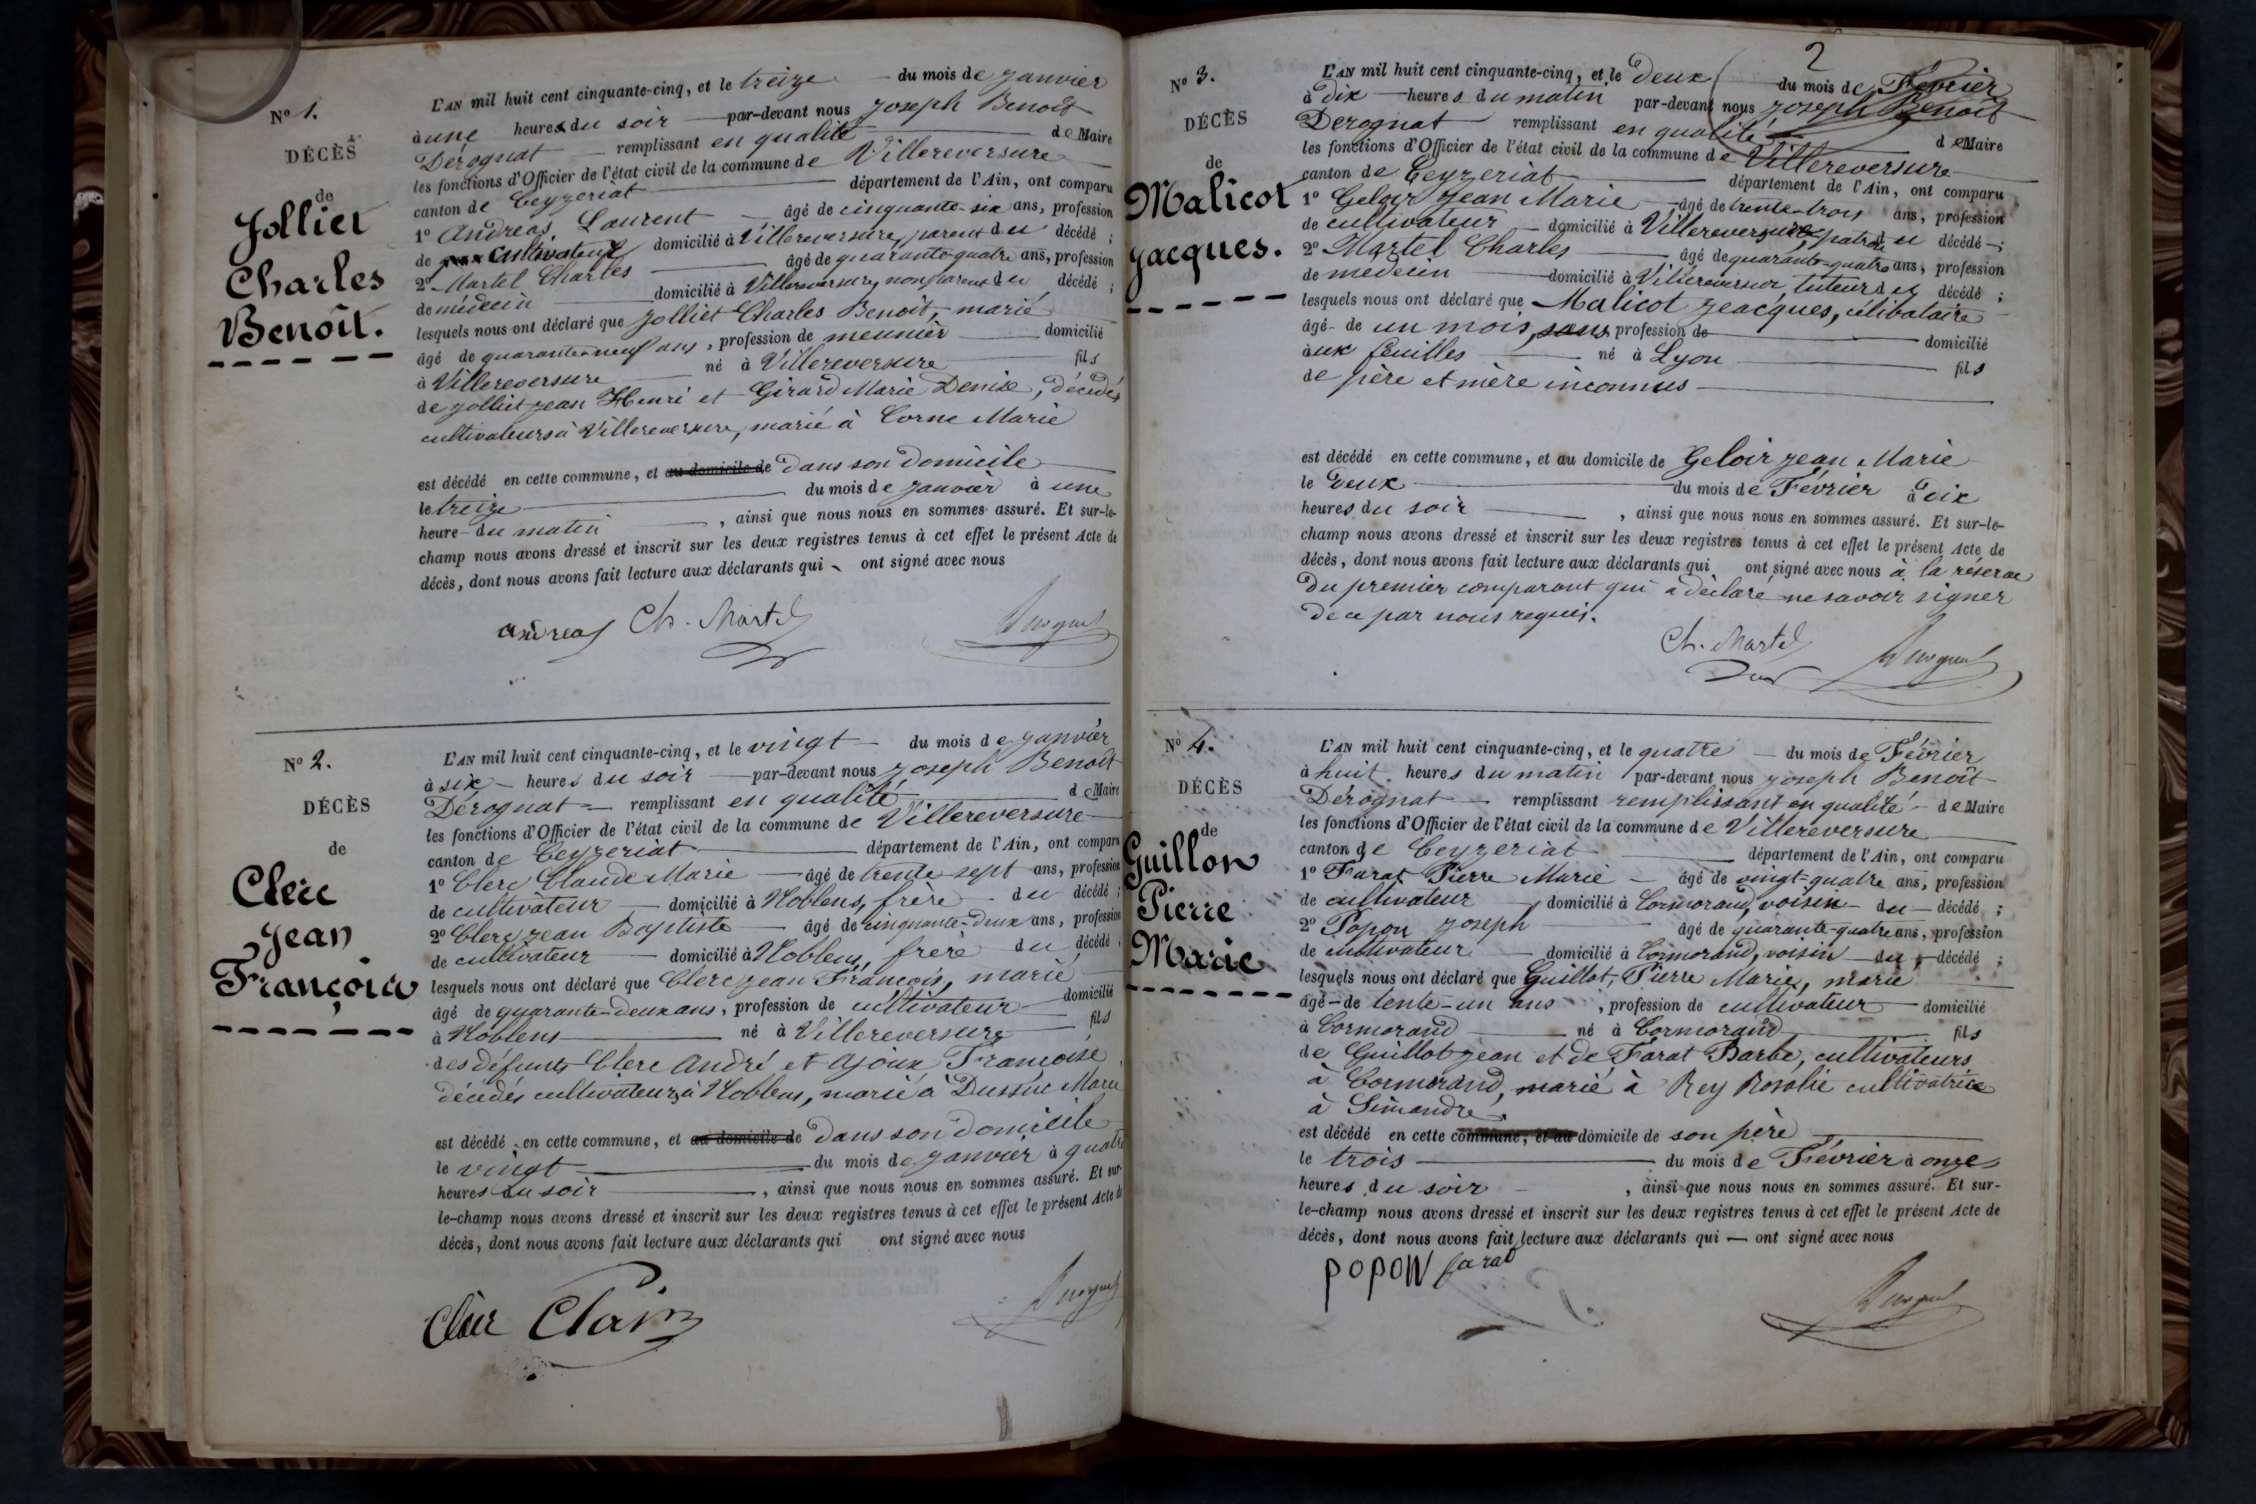 Nº 1.
DÉCÈS
de
Jolliet
Charles
Benoît.
L'AN mil huit cent cinquante-cinq, et le treize du mois de janvier
à une heures du soir par-devant nous Joseph Benoît
Dérognat remplissant en qualité de Maire
les fonctions d'Officier de l'état civil de la commune de Villereversure
canton de Ceyzeriat département de l'Ain, ont comparu
1º Andreas Laurent âgé de cinquante-six ans, profession
de cultivateur domicilié à Villereversure, parent du décédé ;
2º Martel Charles âgé de quarante-quatre ans, profession
de médecin domicilié à Villereversure, non parent du décédé ;
lesquels nous ont déclaré que Jolliet Charles Benoît, marié
âgé de quarante-neuf ans, profession de meunier domicilié
à Villereversure né à Villereversure fils
de Jolliet Jean Henri et Girard Marie Denise, décédés
cultivateurs à Villereversure, marié à Corne Marie
est décédé en cette commune, et au domicile de dans son domicile
le treize du mois de janvier à une
heure du matin, ainsi que nous nous en sommes assuré. Et sur-le-
champ nous avons dressé et inscrit sur les deux registres tenus à cet effet le présent Acte de
décès, dont nous avons fait lecture aux déclarants qui ont signé avec nous
andreas Ch. Martel
Nº 2.
DÉCÈS
de
Clerc
Jean
François
L'AN mil huit cent cinquante-cinq, et le vingt du mois de janvier
à six heures du soir par-devant nous Joseph Benoît
Dérognat remplissant en qualité de Maire
les fonctions d'Officier de l'état civil de la commune de Villereversure
canton de Ceyzeriat département de l'Ain, ont comparu
1º Clerc Claude Marie âgé de trente sept ans, profession
de cultivateur domicilié à Noblens, frère du décédé ;
2º Clerc Jean Baptiste âgé de cinquante-deux ans, profession
de cultivateur domicilié à Noblens, frère du décédé ;
lesquels nous ont déclaré que Clerc Jean François, marié
âgé de quarante-deux ans, profession de cultivateur domicilié
à Noblens né à Villereversure fils
des défunts Clerc André et Ajoux Françoise
décédés cultivateurs à Noblens, marié à Marie
est décédé en cette commune, et au domicile de dans son domicile
le vingt du mois de janvier à quatre
heures du soir, ainsi que nous nous en sommes assuré. Et sur-
le-champ nous avons dressé et inscrit sur les deux registres tenus à cet effet le présent Acte de
décès, dont nous avons fait lecture aux déclarants qui ont signé avec nous
Clair
2
Nº 3.
DÉCÈS
de
Malicot
Jacques.
L'AN mil huit cent cinquante-cinq, et le deux du mois de Février
à dix heures du matin par-devant nous Joseph Benoît
Derognat remplissant en qualité de Maire
les fonctions d'Officier de l'état civil de la commune de Villereversure
canton de Ceyzeriat département de l'Ain, ont comparu
1º Geloir Jean Marie âgé de trente-trois ans, profession
de cultivateur domicilié à Villereversure, patron du décédé ;
2º Martel Charles âgé de quarante-quatre ans, profession
de médecin domicilié à Villereversure, tuteur du décédé ;
lesquels nous ont déclaré que Malicot Jeacques, célibataire
âgé de un mois, sans profession de domicilié
aux feuilles né à Lyon fils
de père et mère inconnus
est décédé en cette commune, et au domicile de Geloir Jean Marie
le deux du mois de Février à dix
heures du soir, ainsi que nous nous en sommes assuré. Et sur-le-
champ nous avons dressé et inscrit sur les deux registres tenus à cet effet le présent Acte de
décès, dont nous avons fait lecture aux déclarants qui ont signé avec nous à la réserve
du premier comparant qui a déclaré ne savoir signer
de ce par nous requis.
Ch. Martel
Nº 4.
DÉCÈS
de
Guillon
Pierre
Marie
L'AN mil huit cent cinquante-cinq, et le quatre du mois de Février
à huit heures du matin par-devant nous Joseph Benoît
Dérognat remplissant remplissant en qualité de Maire
les fonctions d'Officier de l'état civil de la commune de Villereversure
canton de Ceyzeriat département de l'Ain, ont comparu
1º Farat Pierre Marie âgé de vingt-quatre ans, profession
de cultivateur domicilié à Cormorand, voisin du décédé ;
2º Popon Joseph âgé de quarante-quatre ans, profession
de cultivateur domicilié à Cormorand, voisin du décédé ;
lesquels nous ont déclaré que Guillot, Pierre Marie, marié
âgé de tente-un ans, profession de cultivateur domicilié
à Cormorand né à Cormorand fils
de Guillot Jean et de Farat Barbe, cultivateurs
à Cormorand, marié à Rey Rosalie cultivatrice
à Simandre.
est décédé en cette commune, et au domicile de son père
le trois du mois de Février à onze
heures du soir, ainsi que nous nous en sommes assuré. Et sur-
le-champ nous avons dressé et inscrit sur les deux registres tenus à cet effet le présent Acte de
décès, dont nous avons fait lecture aux déclarants qui ont signé avec nous
POPON farat